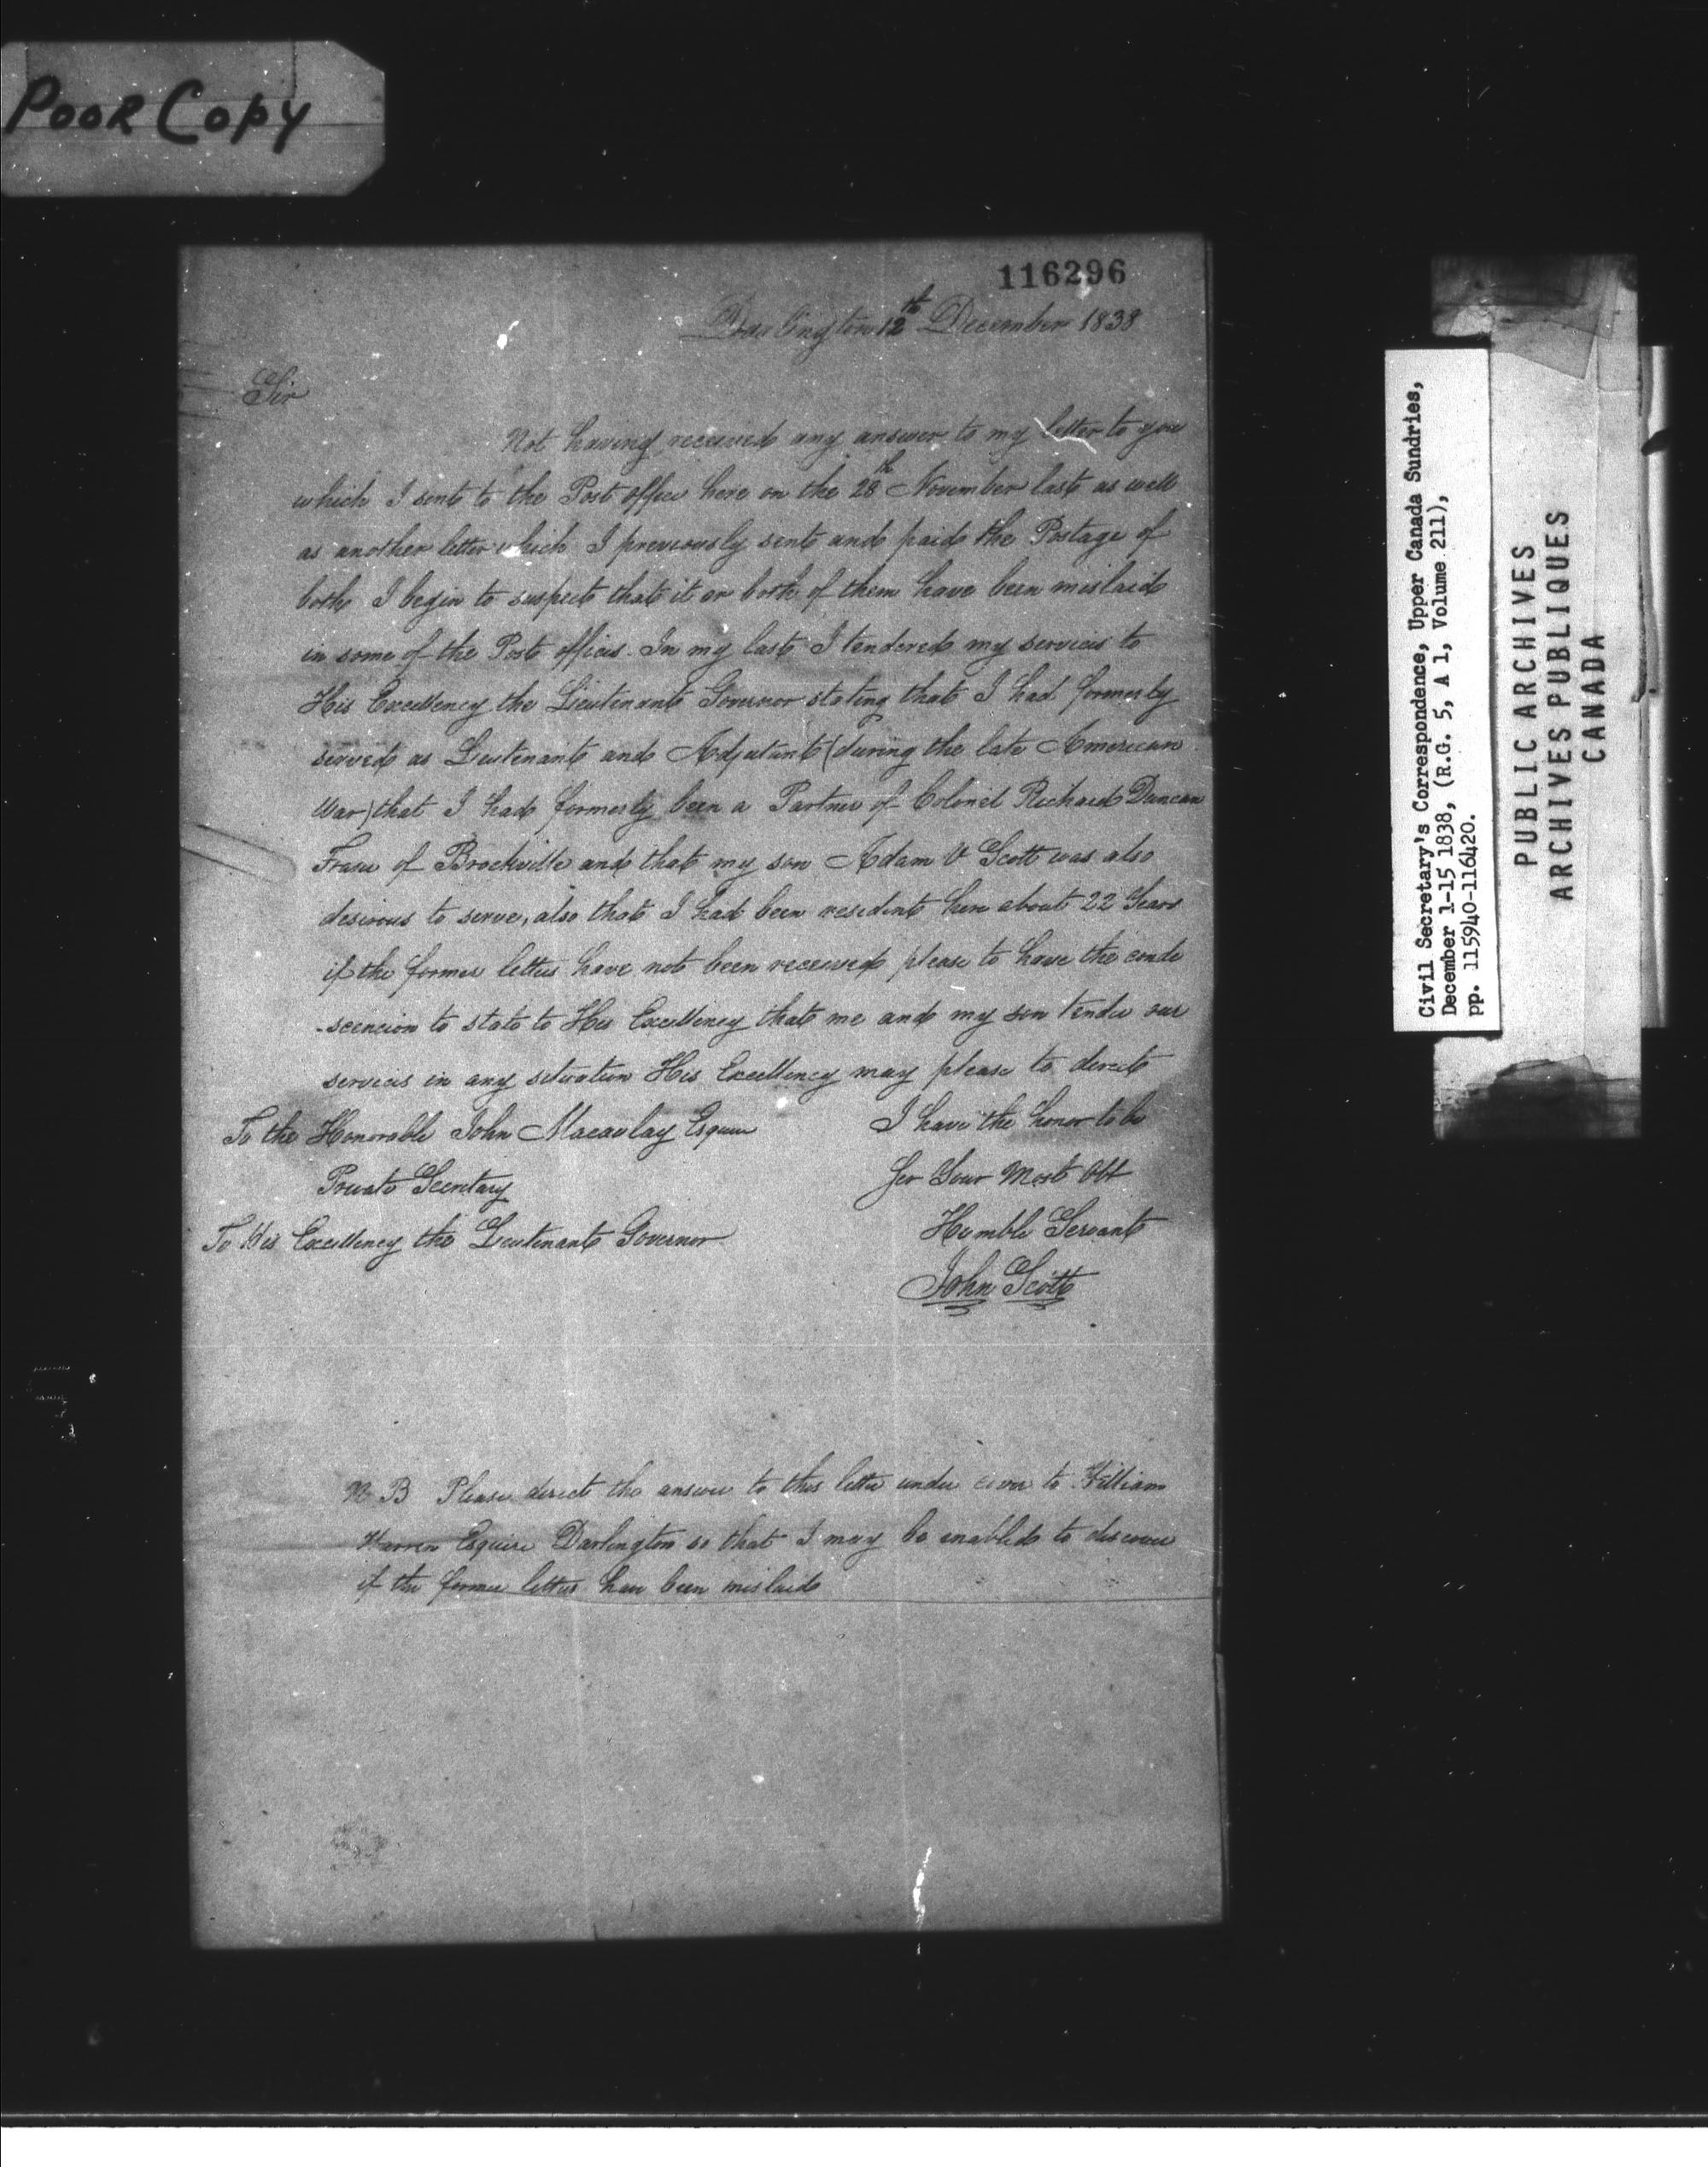 Poor Copy
116296
Darlington 12th December 1838
Sir
Not having received any answer to my letter to you
which I sent to the Post office here on the 28th November last as well
as another letter which I previously sent and paid the Postage of
both I begin to suspect that it or both of them have been mislaid
in some of the Post offices. In my last I tendered my services to
His Excellency the Lieutenant Governor stating that I had formerly
served as Lieutenant and Adjutant (during the late American
War) that I had formerly been a Partner of Colonel Richard Duncan
Fraser of Brockville and that my son Adam V Scott was also
desirous to serve, also that I had been resident here about 22 Years
if the former letters have not been received please to have the conde
-scencion to state to His Excellency that me and my son tender our
services in any situation His Excellency may please to direct
I have the honor to be
To the Honorable John Macaulay Esquire
Private Secretary
To His Excellency the Lieutenant Governor
Sir Your Most Obt
Humble Servant
John Scott
N B Please direct the answer to this letter under cover to William
Warren Esquire Darlington so that I may be enabled to discover
if the former letters have been mislaid
Civil Secretary's Correspondence, Upper Canada Sundries,
December 1-15 1838, (R.G. 5, A 1, Volume 211),
pp. 115940-116420.
PUBLIC ARCHIVES
ARCHIVES PUBLIQUES
CANADA